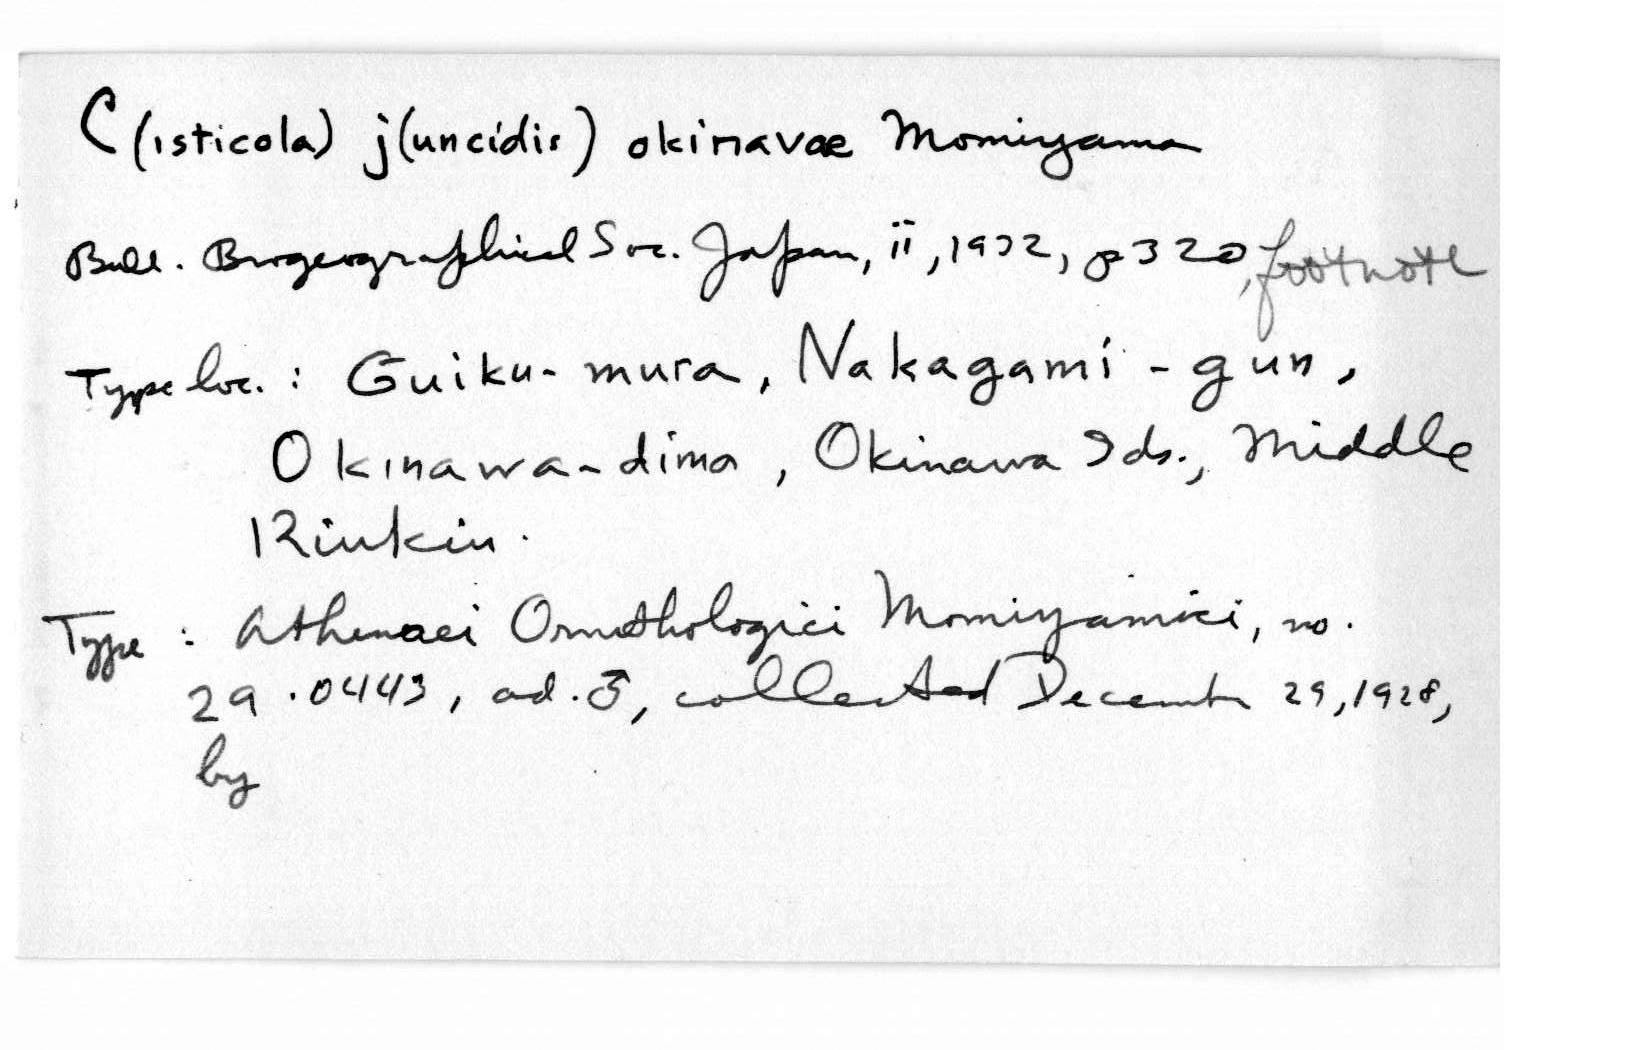 C(isticola) j(uncidis) okinavae Momiyama
Bull. Biogeographical Soc. Japan, ii, 1932, p 320, footnote
Type loc. : Guiku-mura, Nakagami-gun,
Okinawa-dima, Okinawa Ids., Middle
Riukiu.
Type : Athenaei Ornithologici Momiyamici, no.
29.0443, ad. ♂, collected December 29, 1928,
by